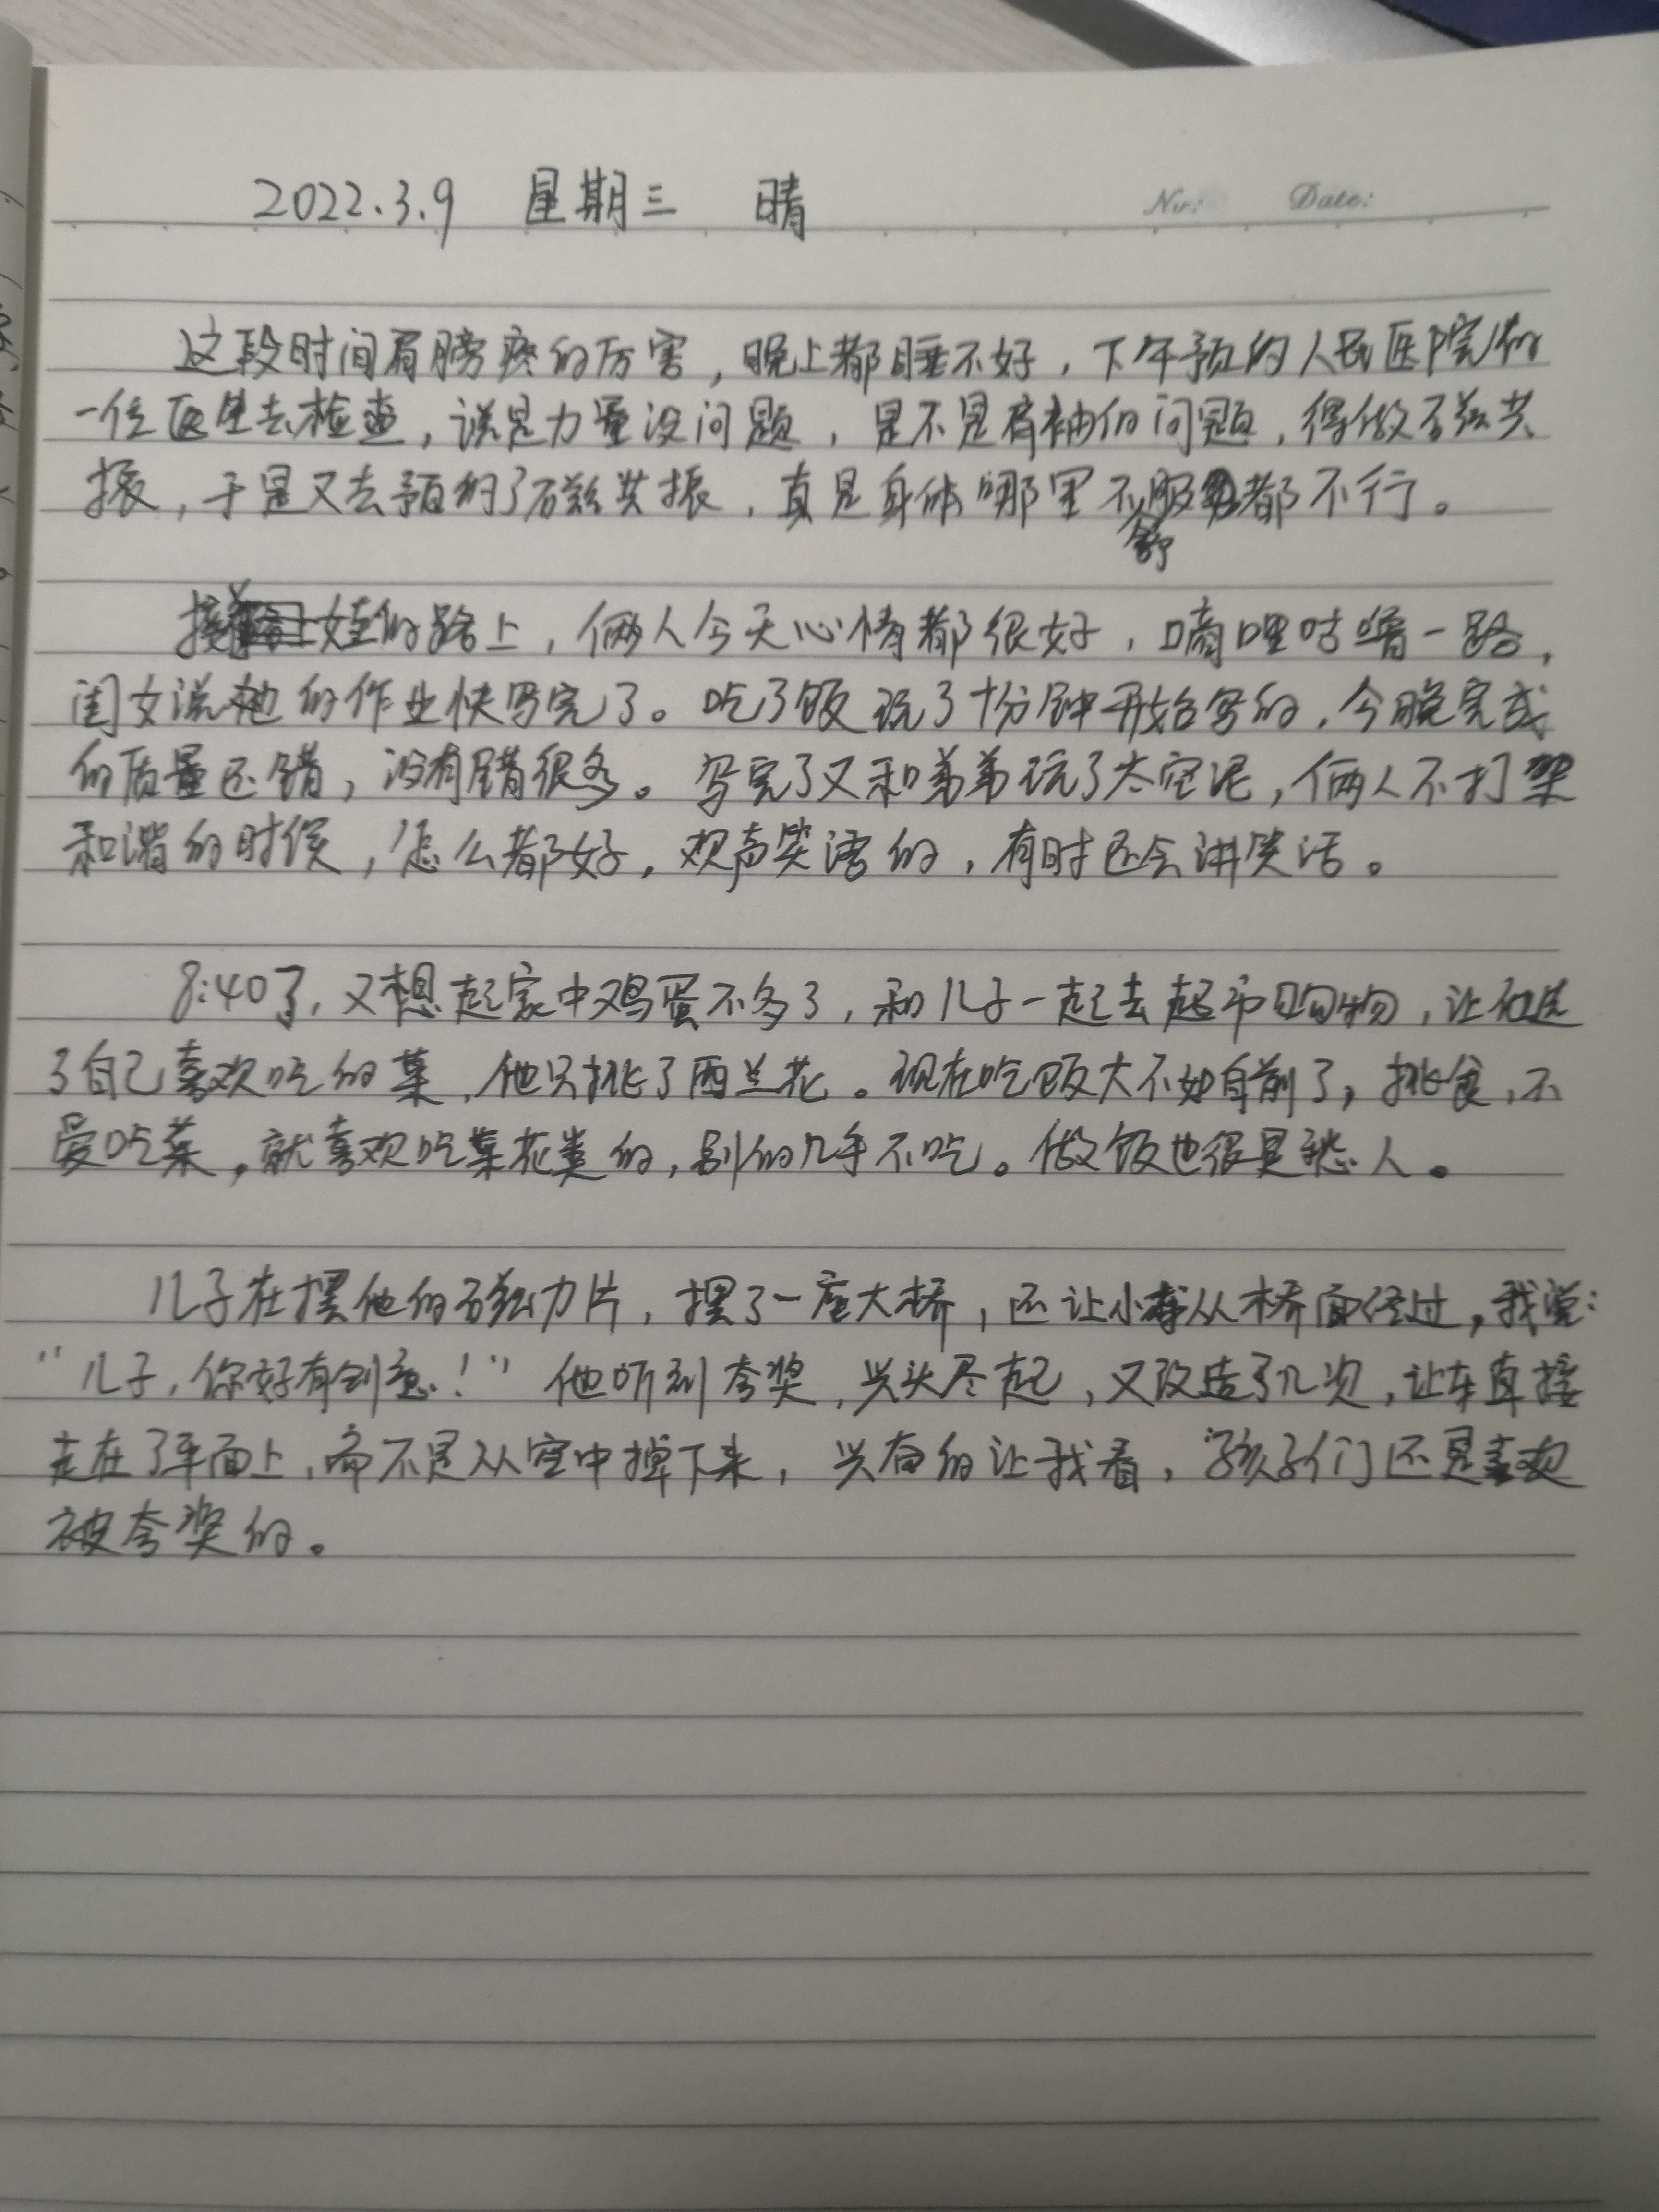 2022.3.9 星期三 晴
No: Date:
这段时间肩膀疼的厉害，晚上都睡不好，下午预约人民医院的
一位医生去检查，说是力量没问题，是不是肩袖的问题，得做磁共
振，于是又去预约了磁共振，真是身体哪里不舒服都不行。
接娃的路上，俩人今天心情都很好，嘀哩咕噜一路，
闺女说她的作业快写完了。吃了饭玩了十分钟开始写的，今晚完成
的质量还错，没有错很多。写完了又和弟弟玩了太空泥，俩人不打架
和谐的时候，怎么都好，欢声笑语的，有时还会讲笑话。
8:40了，又想起家中鸡蛋不多了，和儿子一起去超市购物，让他选
了自己喜欢吃的菜，他只挑了西兰花。现在吃饭大不如自前了，挑食，不
爱吃菜，就喜欢吃菜花类的，别的几乎不吃。做饭也很是愁人。
儿子在摆他的磁力片，摆了一座大桥，还让小车从桥面经过，我说：
“儿子，你好有创意！”他听到夸奖，兴头尽起，又改造了几次，让车直接
走在了平面上，而不是从空中掉下来，兴奋的让我看，孩子们还是喜欢
被夸奖的。